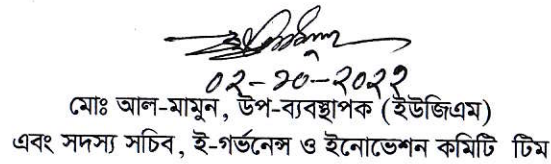 ০২-১০-২০২২
মোঃ আল-মামুন, উপ-ব্যবস্থাপক (ইউজিএম)
এবং সদস্য সচিব, ই-গর্ভনেন্স ও ইনোভেশন কমিটি টিম